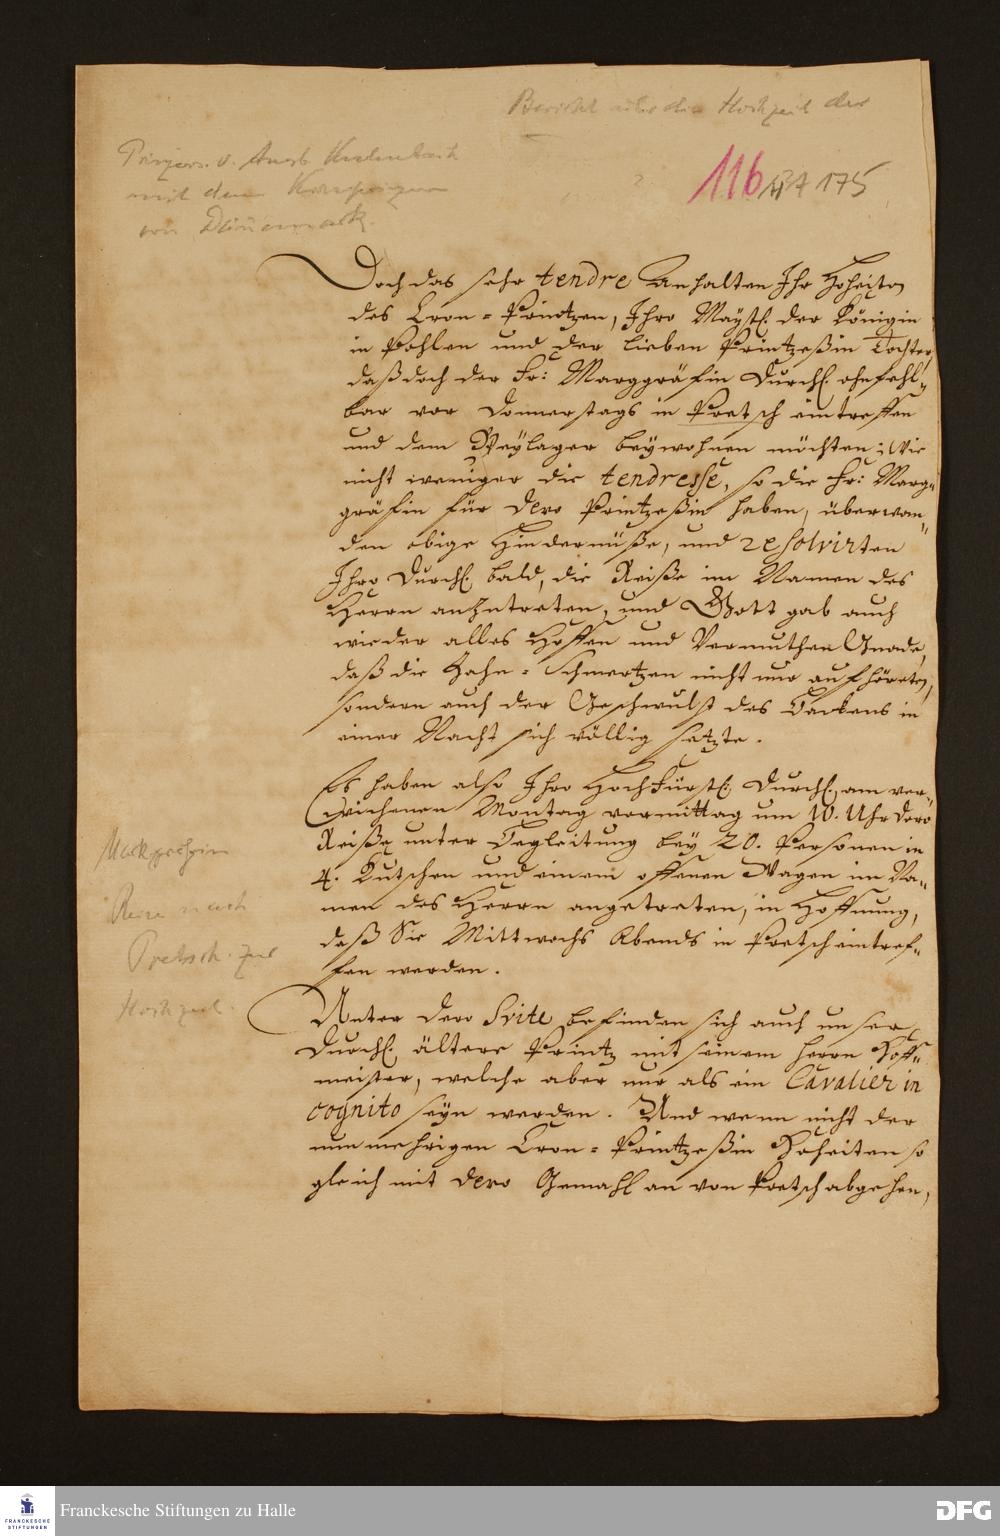 Bericht über die Hochzeit der
Prinzess. v. Ansb. Kulmbach
mit dem Kronprinzen
von Dänemark.
116 175
Doch das sehr tendre Anhalten Ihr Hoheiten
des Cron-Printzen, Ihro Mayst. der Königin
in Pohlen und der lieben Printzeßin Tochter,
daß doch der Fr: Marggräfin Durchl. ohnfehl-
bar vor Donnerstags in Pretsch eintreffen
und dem Beylager beywohnen möchten; Wie
nicht weniger die tendresse, so die Fr: Marg-
gräfin für Dero Printzeßin haben, überwan-
den obige Hindernüße, und resolvirten
Ihro Durchl. bald, die Reiße im Namen des
Herrn anzutreten, und Gott gab auch
wieder alles Hoffen und Vermuthen Gnade,
daß die Zahn-Schmertzen nicht nur aufhöreten,
sondern auch der Geschwulst des Backens in
einer Nacht sich völlig setzte.
Es haben also Ihro HochFürstl. Durchl. am ver-
wichenen Montag vormittag um 10. Uhr Dero
Reiße unter Begleitung bey 20. Personen in
4. Kutschen und einem offenen Wagen im Na-
men des Herrn angetreten, in Hoffnung,
daß Sie Mittwochs Abends in Pretsch eintref-
fen werden.
Markgräfin
Reise nach
Pretsch. zur
Hochzeit.
Unter Dero Svite befinden sich auch unser
Durchl. ältere Printz mit seinem Herrn Hoff-
meister, welche aber nur als ein Cavalier in
cognito seyn werden. Und wenn nicht der
nunmehrigen Cron-Printzeßin Hoheiten so
gleich mit Dero Gemahl an von Pretsch abgehen,
Franckesche Stiftungen zu Halle
FRANCKESCHE
STIFTUNGEN
DFG